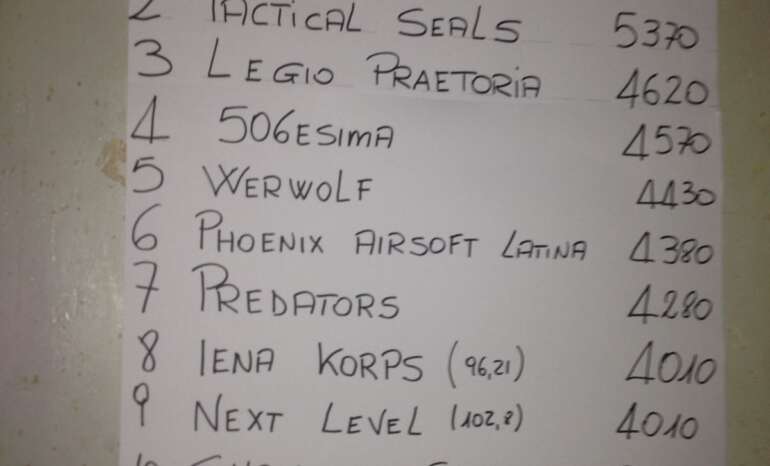 2 TACTICAL SEALS 5370
3 LEGIO PRAETORIA 4620
4 506ESIMA 4570
5 WERWOLF 4430
6 PHOENIX AIRSOFT LATINA 4380
7 PREDATORS 4280
8 IENA KORPS (96,21) 4010
9 NEXT LEVEL (102,8) 4010